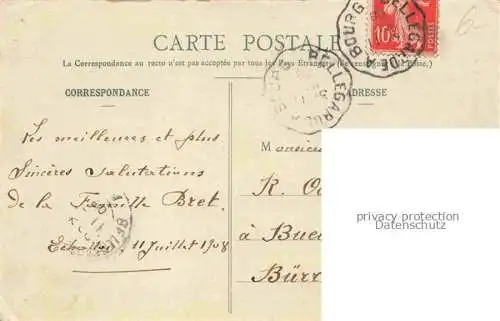 CARTE POSTALE
La Correspondance au recto n'est pas acceptée par tous les Pays Etrangers (Se renseigner à la Poste.)
CORRESPONDANCE
ADRESSE
Les meilleures et plus
Sincères Salutations
de la Famille Bret
11 Juillet 1908
Monsieur
R.
à
privacy protection
Datenschutz
BOURG
BELLEGARDE
BELLEGARDE
10
POSTES
6-